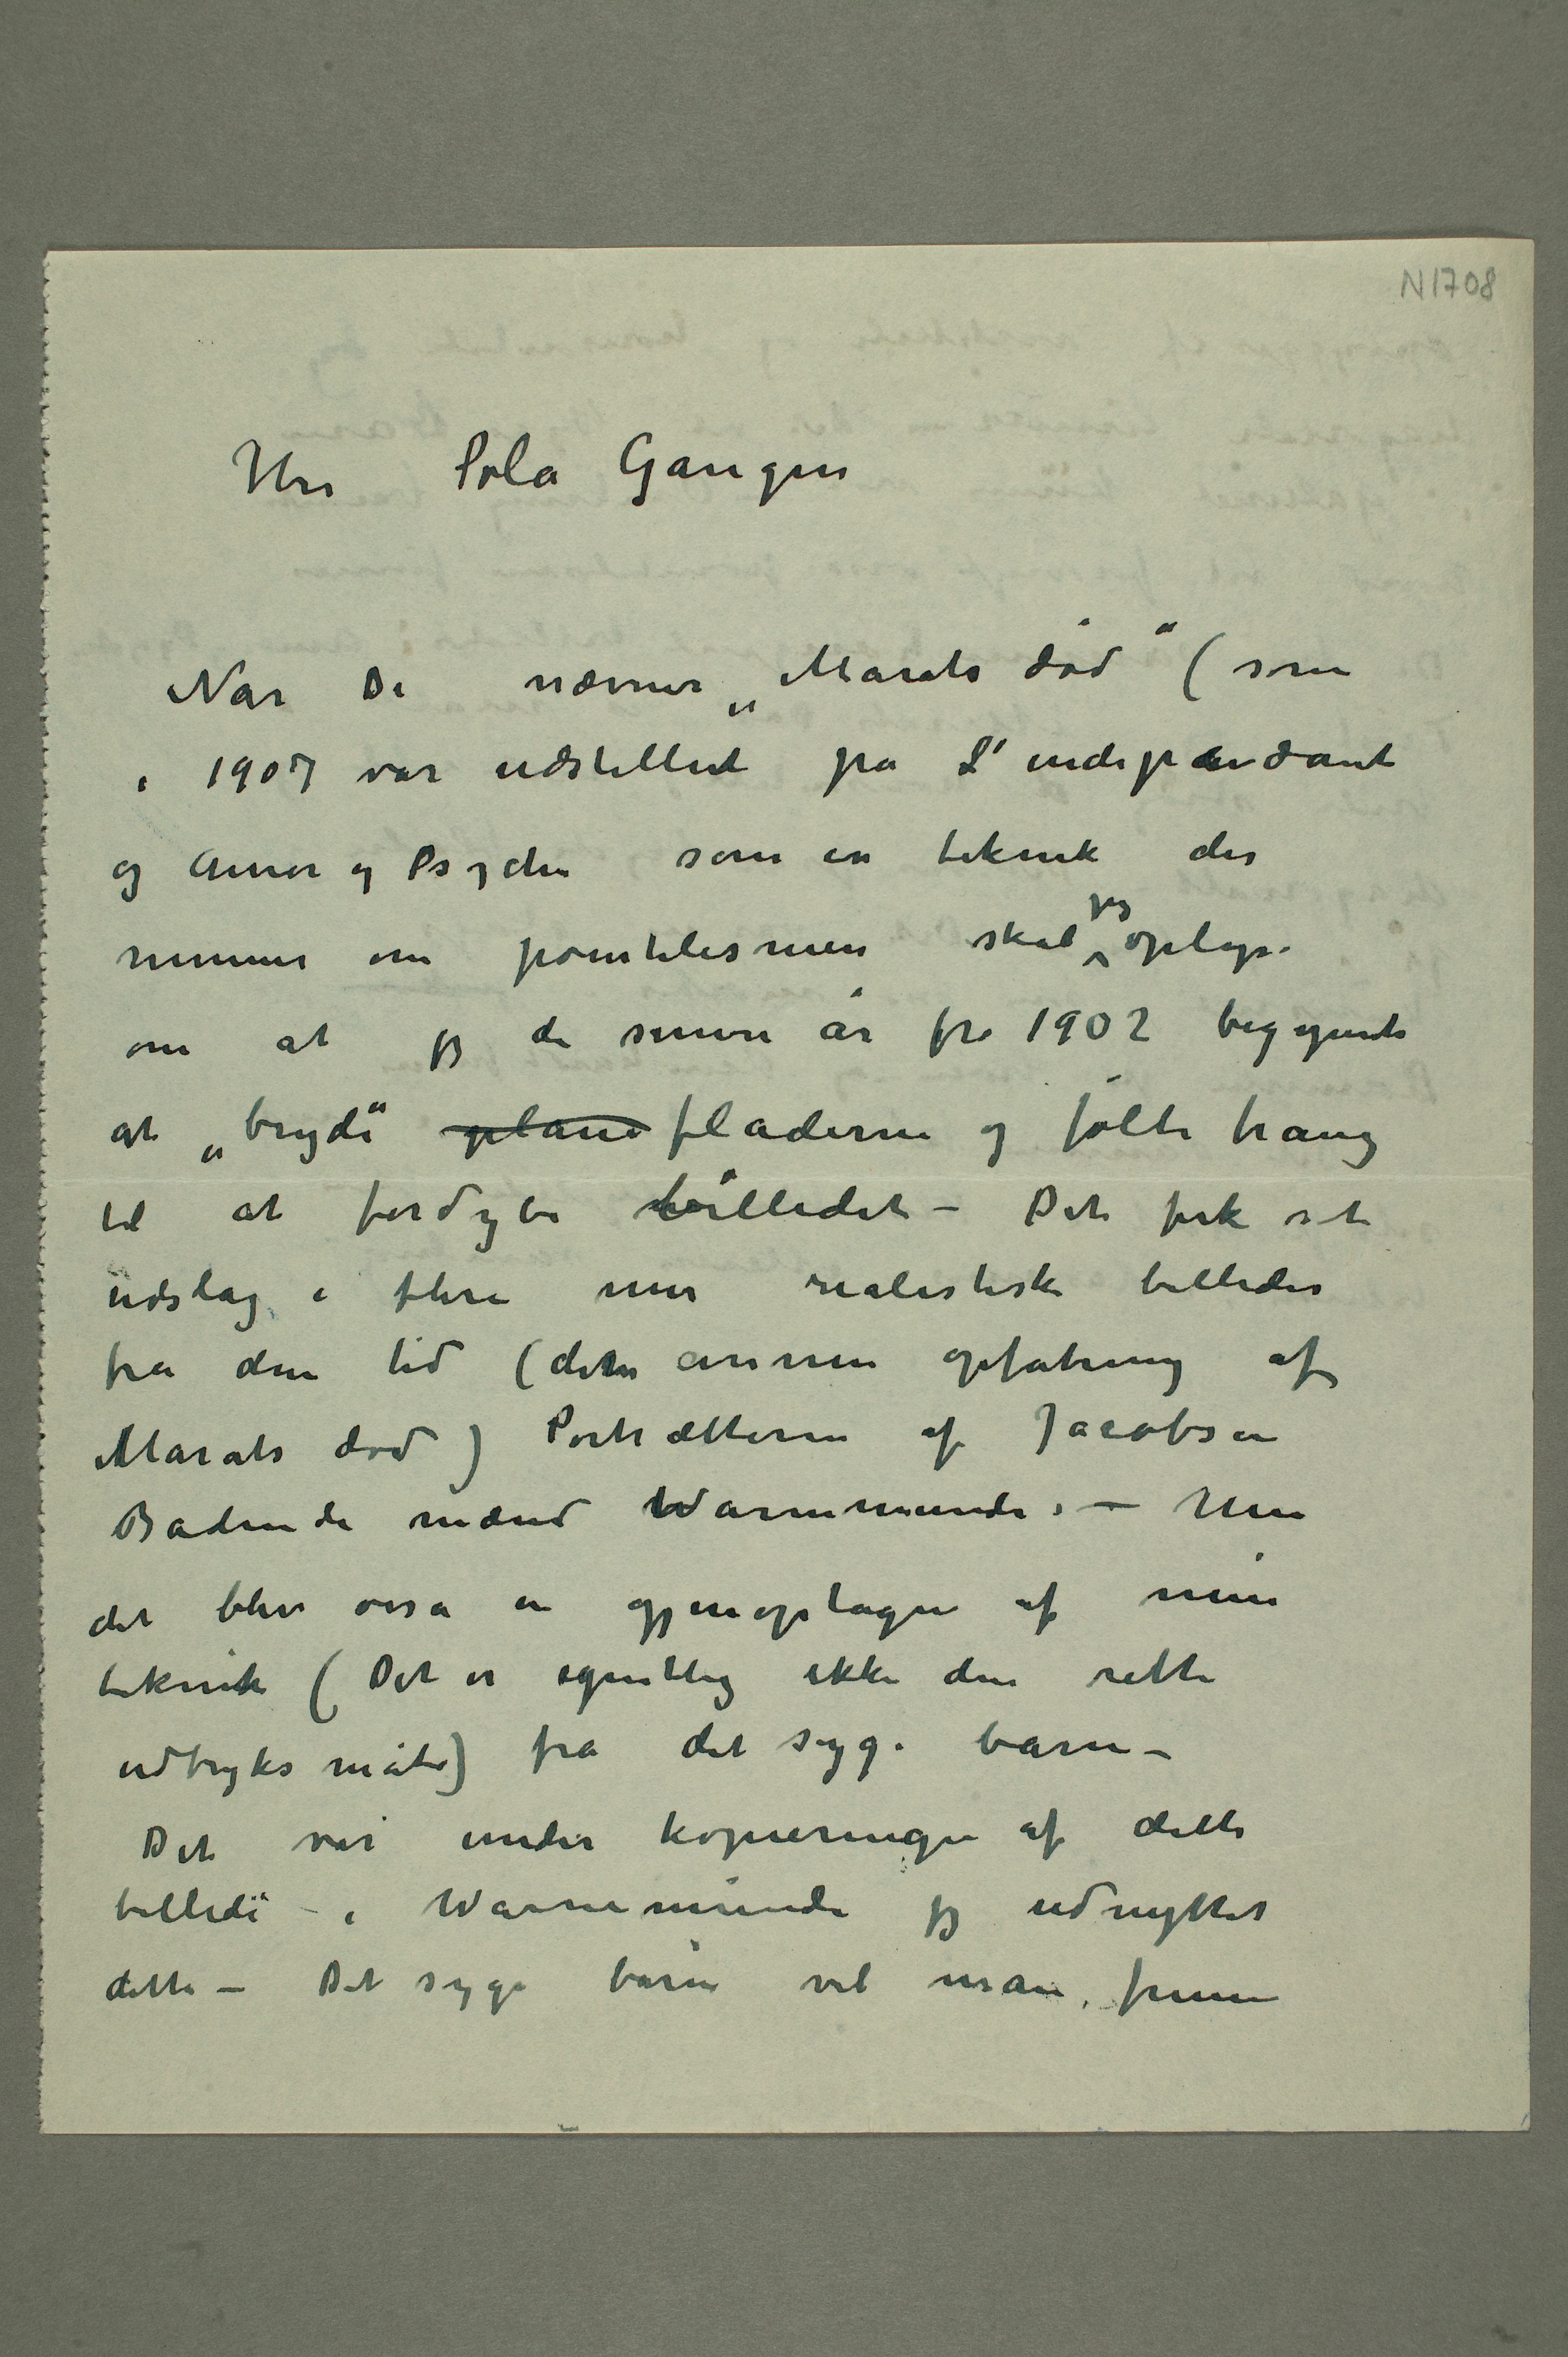 N1708
Herr Pola Gaugin
Når De nævner „Marats død“ (som
i 1907 var udstillet på L’independant
og Amor og Psyche som en teknik der
minner om pointilismen skal jeg oplyse
om at jeg de senere år fra 1902 begyndte
at „bryde“ plane fladerne og følte trang
til at fordybe billedet – Det fik sit
udslag i flere mer realistiske billeder
fra den tid (den annen opfatning af
Marats død) Portrætterne af Jacobsen
Badende mænd Warnemunde. – Men
det blev osså en gjenoptagen af min
teknik (Det er egentlig ikke den rette
udtryks måte) fra det syge barn –
Det var under kopieringen af dette
billede – i Warnemünde jeg udnyttet
dette – Det syge barn vil man finne